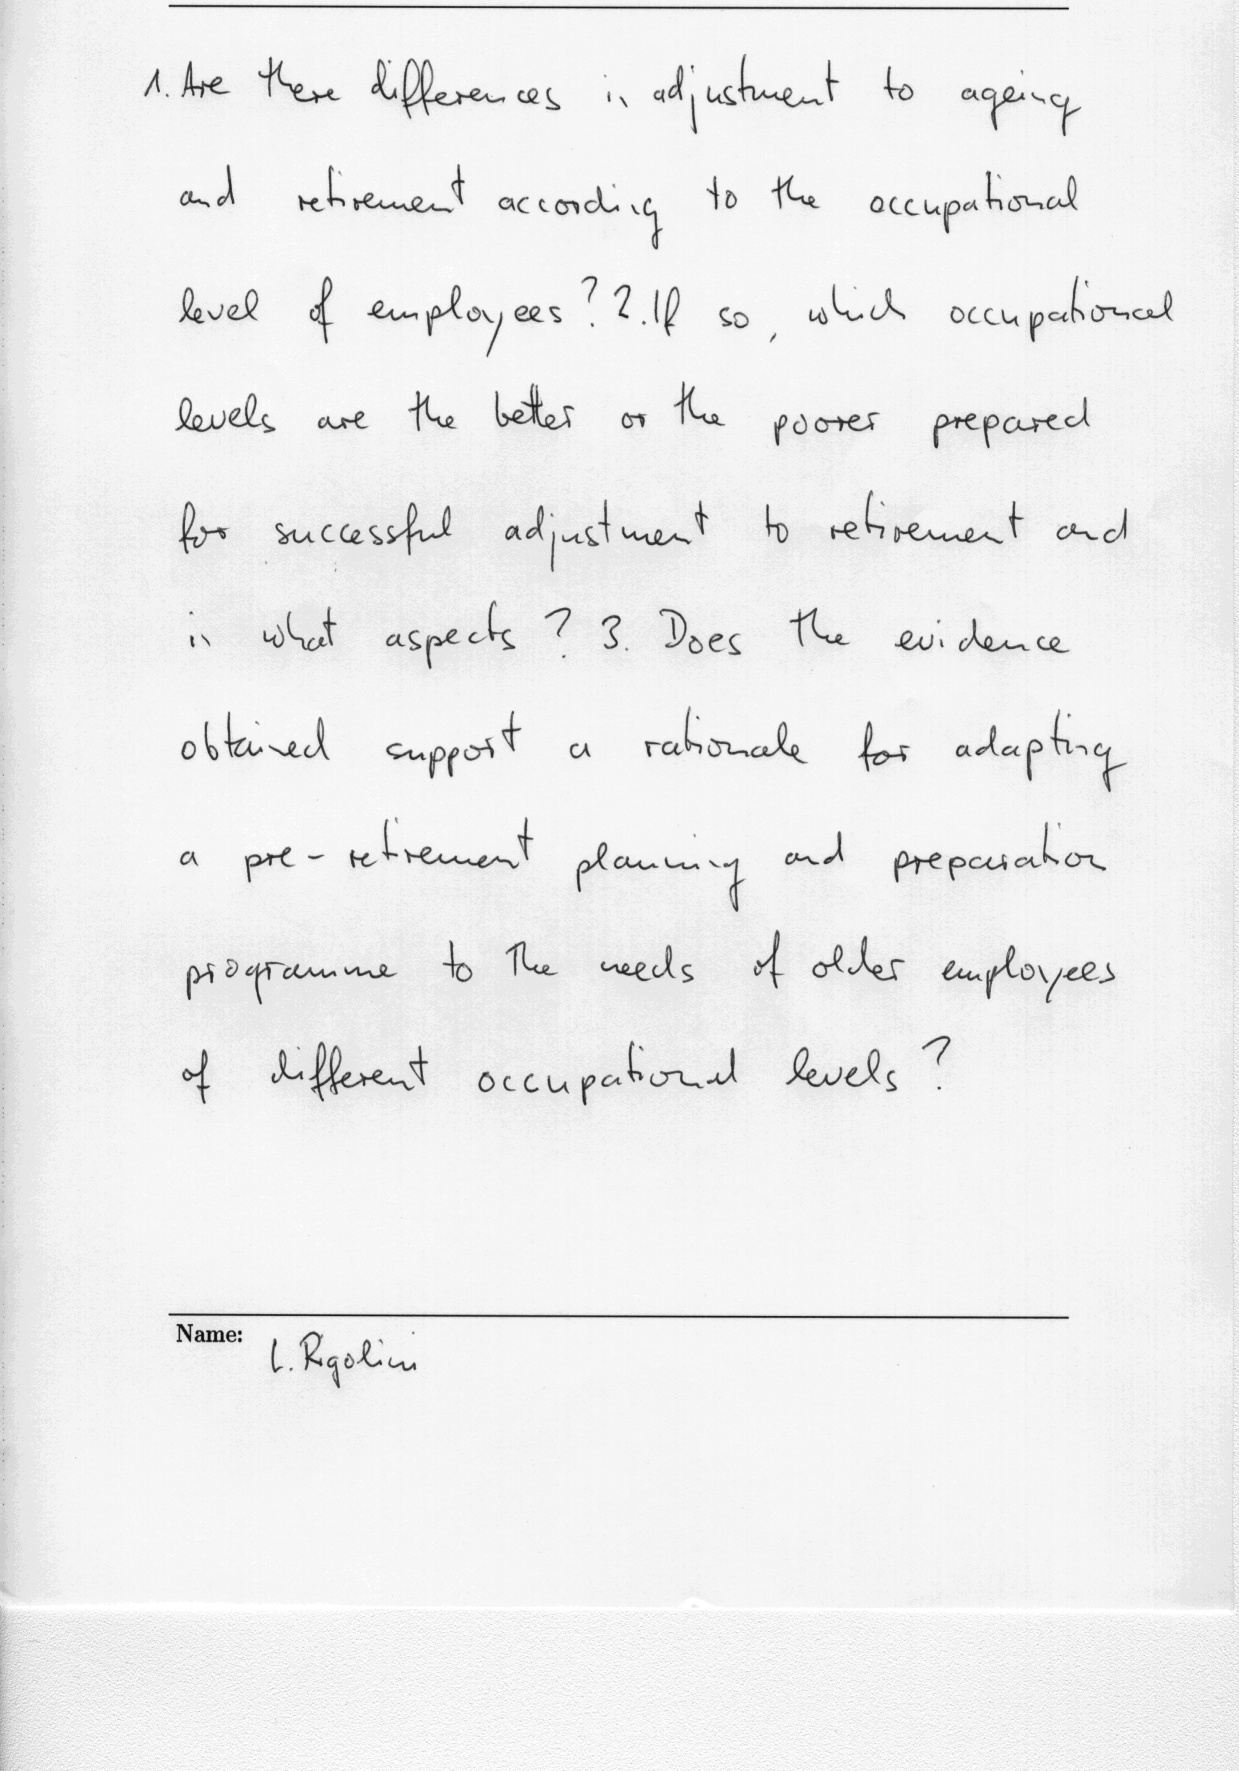 1. Are there differences in adjustment to ageing
and retirement according to the occupational
level of employees? 2. If so, which occupational
levels are the better or the poorer prepared
for successful adjustment to retirement and
in what aspects? 3. Does the evidence
obtained support a rationale for adapting
a pre-retirement planning and preparation
programme to the needs of older employees
of different occupational levels?
Name: L. Rigolini